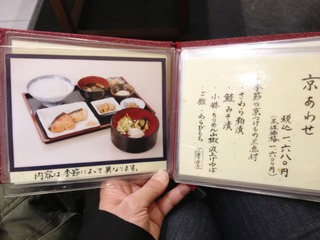 京あわせ
税込 一、六八〇円
(本体価格 一、六〇〇円)
季節の京つけもの三点付
さわら粕漬
鮭みそ漬
・小鉢・ちりめん山椒
・ご飯・わらびもち
内容は季節によって異なります。